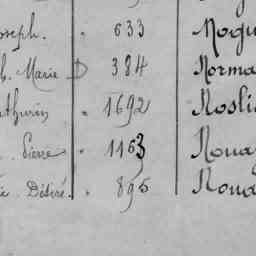 oseph. " 633 Nogu
h. Marie D 384 Norma
thurin " 1692 Nosli
Pierre " 1163 Noua
e Désiré. " 895 Noua